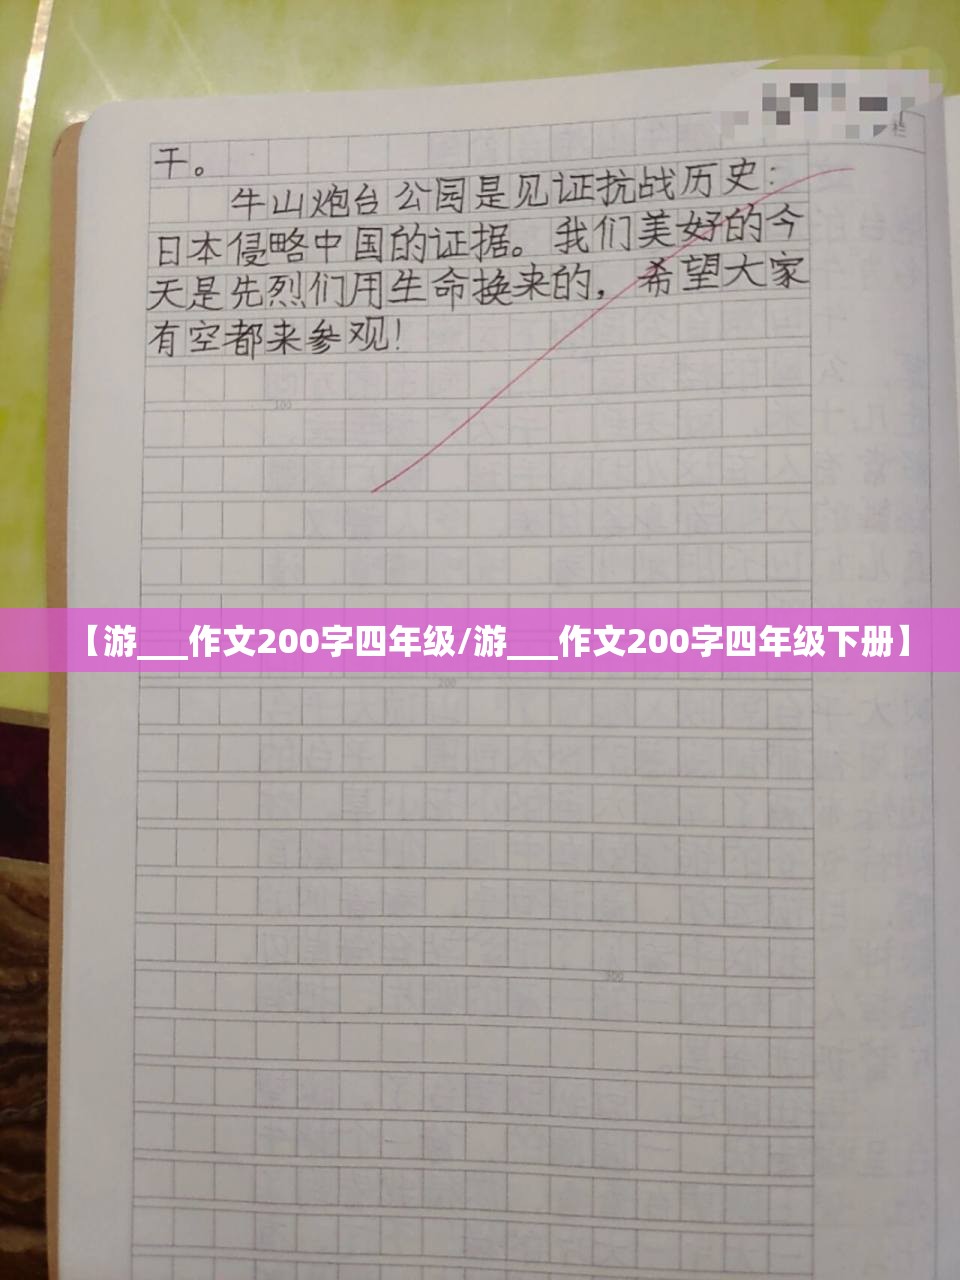 干。
牛山炮台公园是见证抗战历史:
日本侵略中国的证据。我们美好的今
天是先烈们用生命换来的，希望大家
有空都来参观！
100
【游___作文200字四年级/游___作文200字四年级下册】
200
300